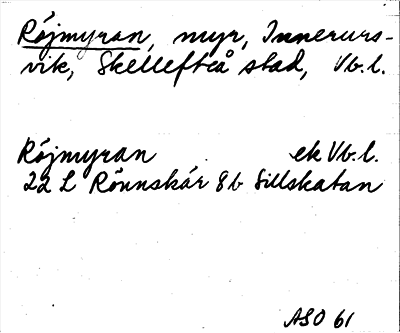 Röjmyran, myr, Innerurs-
vik, Skellefteå stad, Vb.l.
Röjmyran ek Vb.l.
22 L Rönnskär 8b Sillskatan
ASO 61